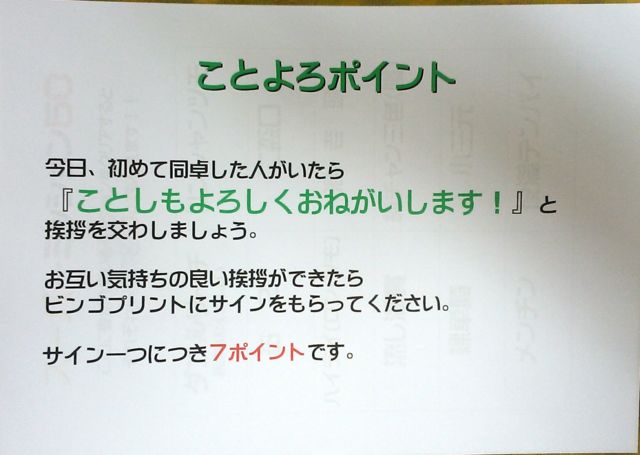 ことよろポイント
今日、初めて同卓した人がいたら
『ことしもよろしくおねがいします！』と
挨拶を交わしましょう。
お互い気持ちの良い挨拶ができたら
ビンゴプリントにサインをもらってください。
サイン一つにつき７ポイントです。